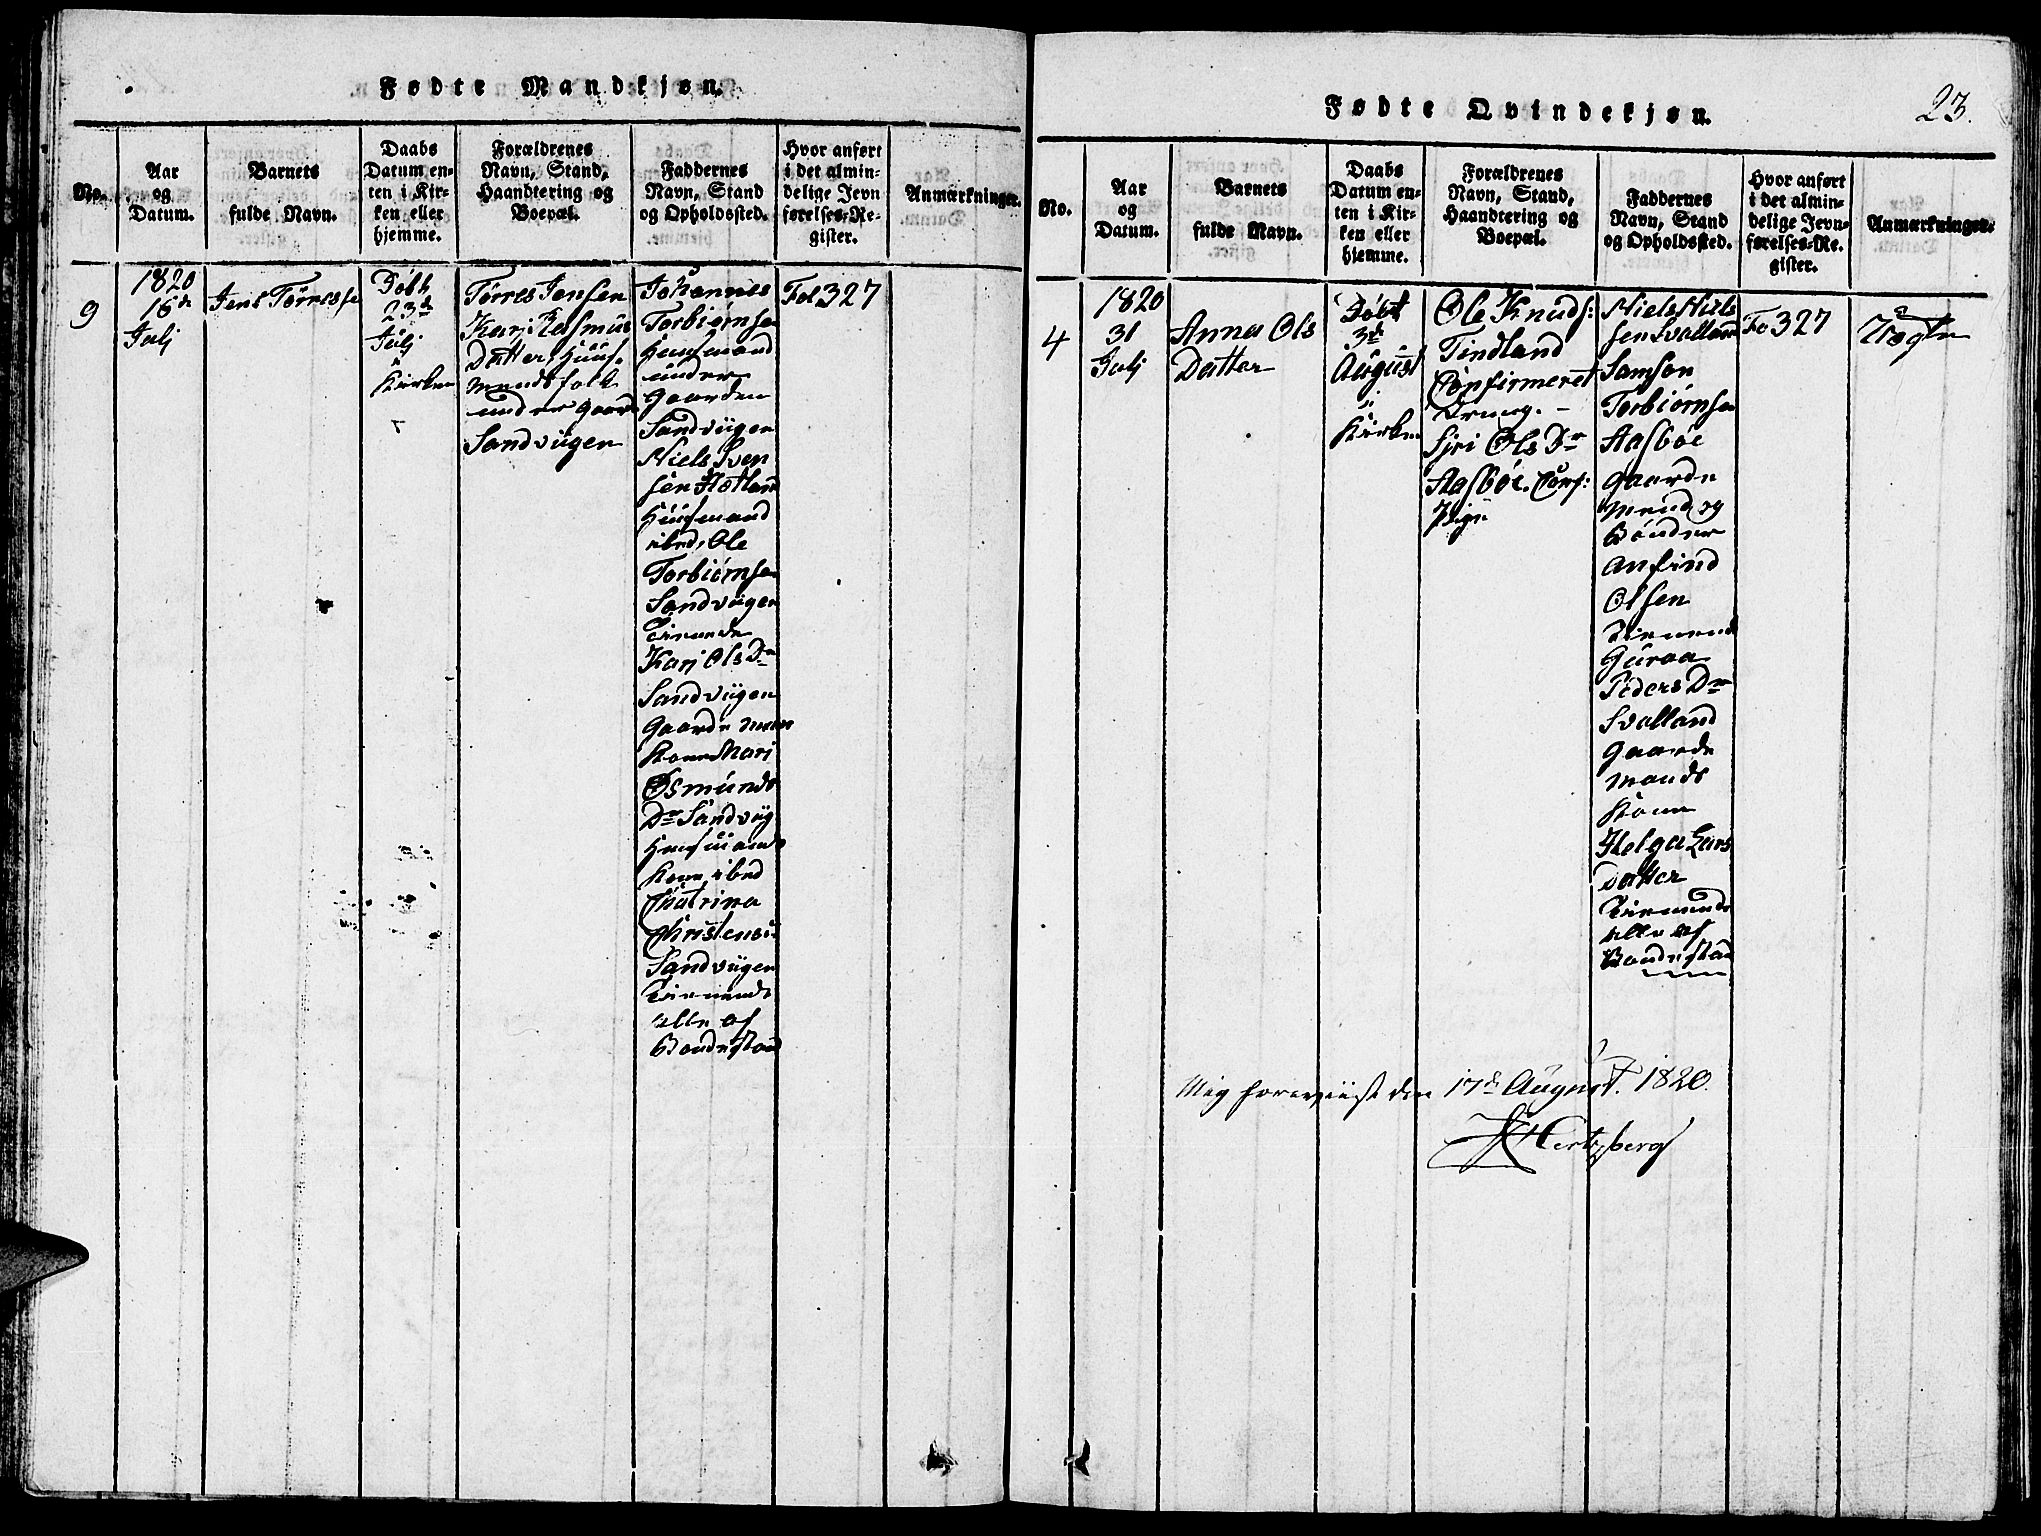 Fødte Mandkjøn.
No.
Aar
og
Datum.
Barnets
fulde Navn.
Daabs
Datum en-
ten i Kir-
ken eller
hjemme.
Forældrenes
Navn, Stand,
Haandtering og
Boepæl.
Faddernes
Navn, Stand
og Opholdssted.
Hvor anført
i det almin-
delige Jevn
førelses-Re-
gister.
Anmærkninger.
9
1820
16de
Julj
Jens Tørresse
Døbt
23de
Julj
i
Kirken
Tørres Jensen
Karj Rasmus
Datter, Huus-
mandsfolk
under Gaard
Sandviigen
Johannes
Torbiørnsen
Huusmand
under
Gaarden
Sandviigen
Niels Sven
sen Hetland
Huusmand
ibed, Ole
Torbiørnsen
Sandviigen
Tienende
Karj Ols Dr
Sandviigen
Gaardemans
Kone Mari
Osmunds
Dr Sandviig
Huusmands
Kone ibed
Chatrina
Christens
Sandviigen
Tienende
alle af
Bondestand
Fol 327
Fødte Qvindekjøn.
23.
No.
Aar
og
Datum.
Barnets
fulde Navn.
Daabs
Datum en-
ten i Kir-
ken eller
hjemme.
Forældrenes
Navn, Stand,
Haandtering og
Boepæl.
Faddernes
Navn, Stand
og Opholdssted.
Hvor anført
i det almin-
delige Jevn-
førelses-Re-
gister.
Anmærkninger.
4
1820
31
Julj
Anna Ols
Datter
Døbt
3de
August
i
Kirken
Ole Knuds:
Tindland
Confirmeret
Dreng. -
Sjri Ols Dr
Aasbøe. Conf:
Pige
Niels Niels
sen Svalland
Samson
Torbiørnsen
Aasbøe
Gaarde
Mend og
Bønder
Anfind
Olsen
Tienende
Guroa
Peders Dr
Svalland
Gaarde
Mands
Kone
Helga Lars
datter
Tienende
alle af
Bondestand
Fo 327
Uægte
Mig foreviist den 17de August. 1820.
Hertzberg